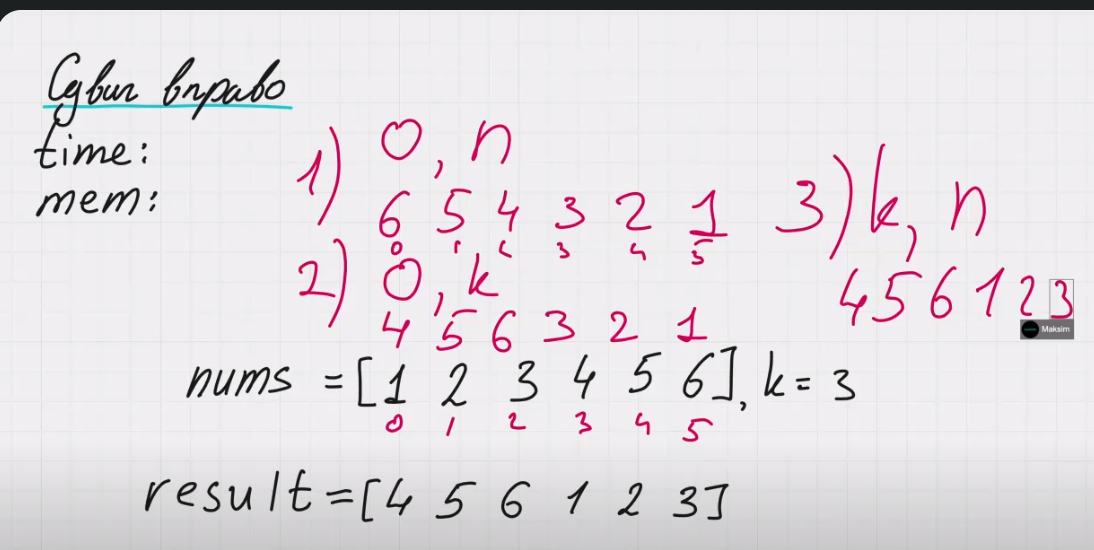 Сдвиг вправо
time:
mem:
1) 0, n
6 5 4 3 2 1
0 1 2 3 4 5
2) 0, k
4 5 6 3 2 1
3) k, n
4 5 6 1 2 3
Maksim
nums = [1 2 3 4 5 6], k = 3
0 1 2 3 4 5
result = [4 5 6 1 2 3]